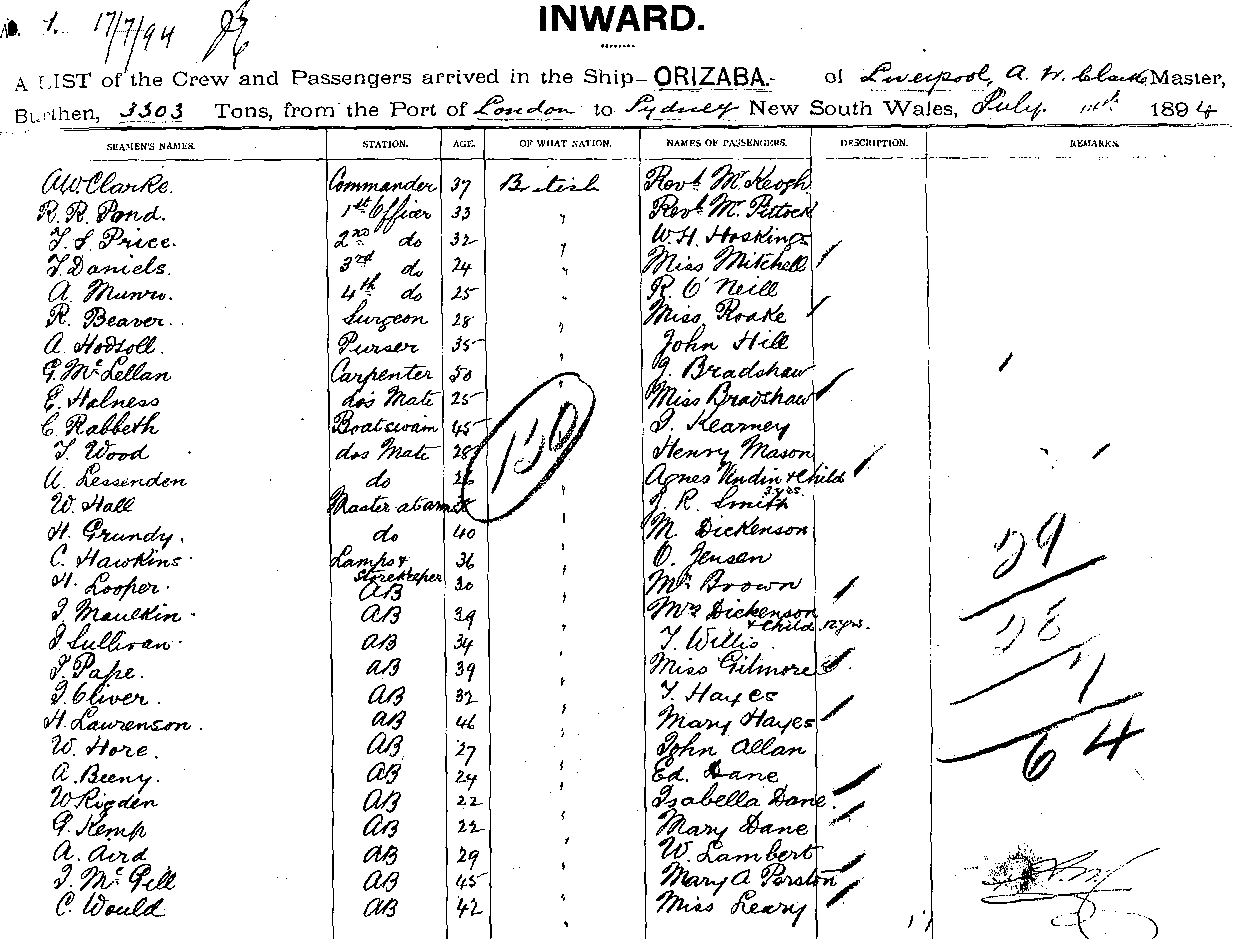 1. 17/7/94
INWARD.
A LIST of the Crew and Passengers arrived in the Ship ORIZABA. of Liverpool, A. W. Clarke Master,
Burthen, 3303 Tons, from the Port of London to Sydney New South Wales, July 1894
SEAMEN'S NAMES. STATION. AGE. OF WHAT NATION. NAMES OF PASSENGERS. DESCRIPTION. REMARKS.
A W Clarke. Commander 37 British Revd. Mr. Keogh
R. R. Pond. 1st Officer 33 " Revd. Mr. Pittock
T. S. Price. 2nd do 32 " W. H. Hoskings
T. Daniels. 3rd do 24 " Miss Mitchell
A. Munro. 4th do 25 " R. O'Neill
R. Beaver. Surgeon 28 " Miss Roake
A. Hodsoll. Purser 35 " John Hill
G. McLellan Carpenter 50 " G. Bradshaw
E. Halness do's Mate 25 Miss Bradshaw
C. Rabbeth Boatswain 45 J. Kearney
T. Wood do's Mate 28 130 Henry Mason
A. Lessenden do Agnes Undin & Child
3 yrs.
W. Hall Master at arms " J. R. Smith
H. Grundy. do 40 " M. Dickenson
C. Hawkins. Lamps & Storekeeper 36 " O. Jensen 29
H. Looper. AB 30 " Mr. Brown
J. Maulkin. AB 39 " Mrs Dickenson
& Child 12 yrs.
J. Sullivan. AB 34 " T. Willis 28
T. Pape. AB 39 " Miss Gilmore 7
J. Oliver. AB 32 " T. Hayes
H. Laurenson. AB 46 " Mary Hayes
W. Hore. AB 27 " John Allan 64
A. Beeny. AB 24 " Ed. Dane
W Rigden AB 22 " Isabella Dane
G. Kemp AB 22 " Mary Dane
A. Aird AB 29 " W. Lambert
J. McGill AB 45 " Mary A Perston
C. Would AB 42 " Miss Leary